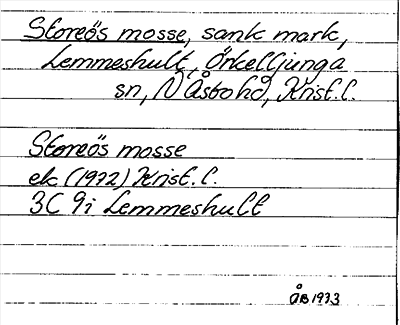 Storeös mosse, sank mark,
Lemmeshult, Örkelljunga
sn, N Åsbo hd, Krist. l.
Storeös mosse
ek (1972) Krist. l.
3C 9i Lemmeshult
ÅB 1973